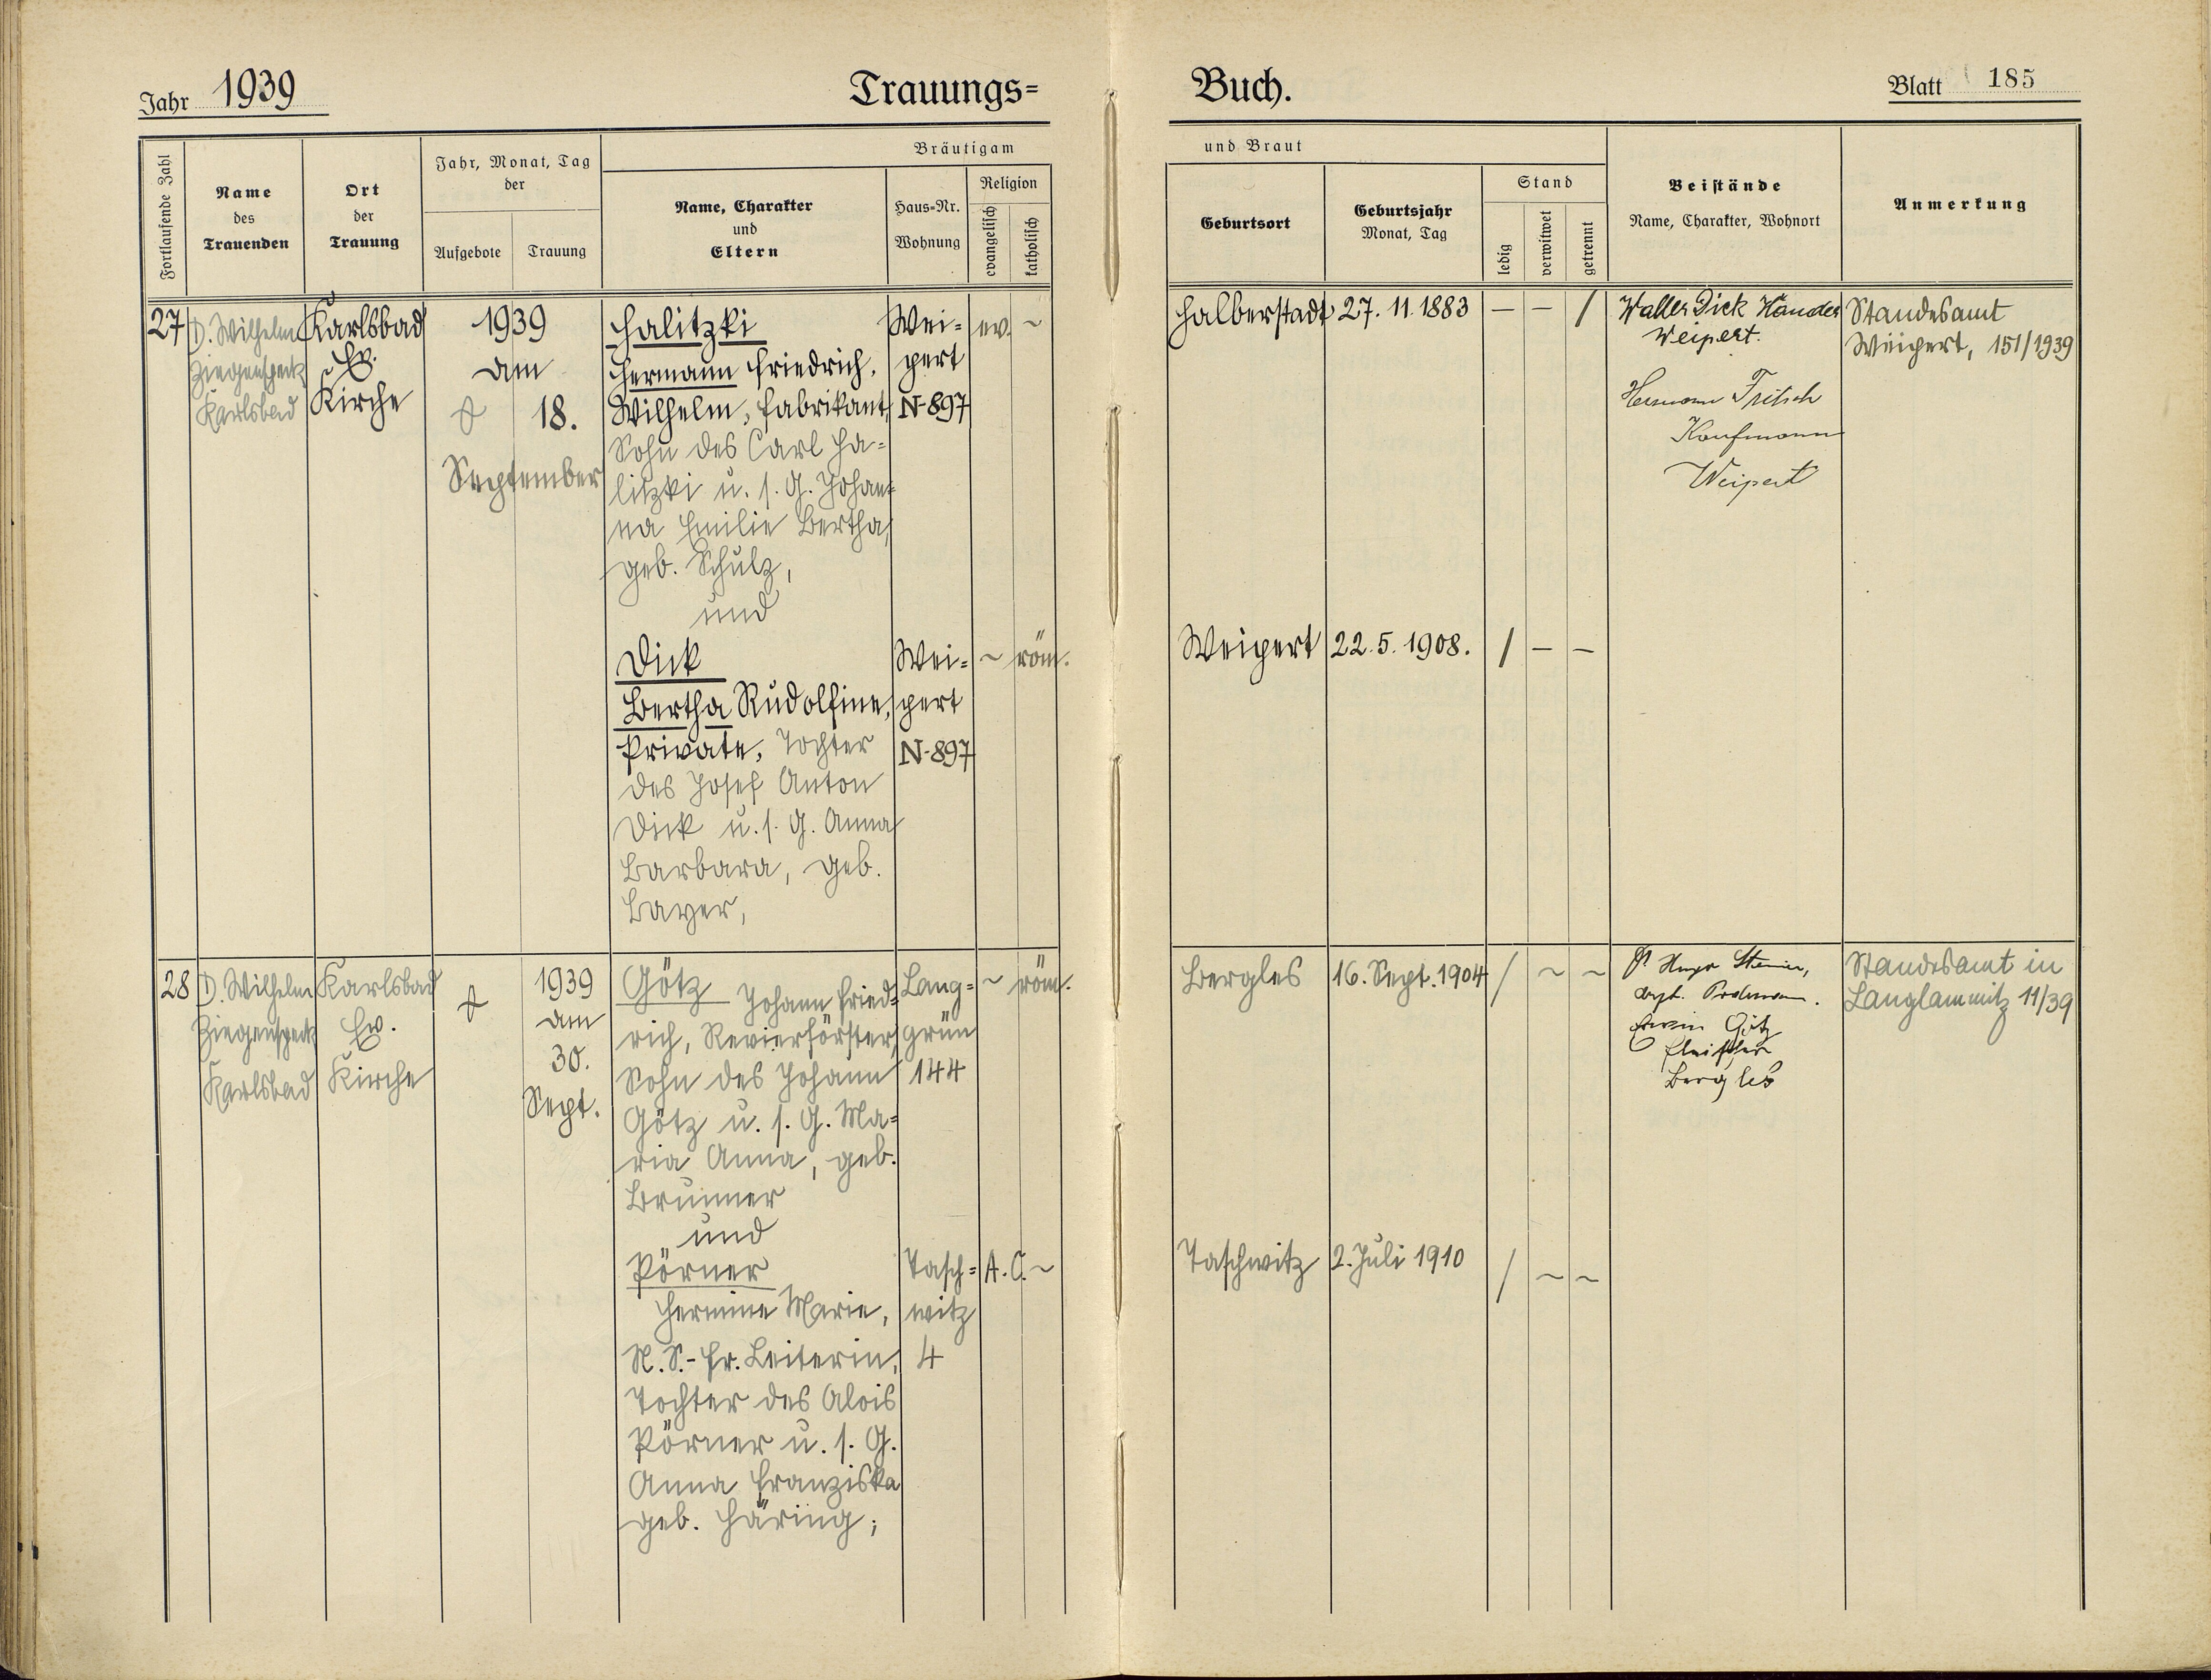 Jahr 1939
Trauungs=
Buch.
Blatt 185
Fortlaufende Zahl
Name
des
Trauenden
Ort
der
Trauung
Jahr, Monat, Tag
der
Aufgebote
Trauung
Bräutigam
Name, Charakter
und
Eltern
Haus=Nr.
Wohnung
Religion
evangelisch
katholisch
und Braut
Geburtsort
Geburtsjahr
Monat, Tag
Stand
ledig
verwitwet
getrennt
Beistände
Name, Charakter, Wohnort
Anmerkung
27
D. Wilhelm
Ziegenspeck
Karlsbad
Karlsbad
Ev.
Kirche
1939
am
18.
September
Halitzki
Hermann Friedrich,
Wilhelm, Fabrikant,
Sohn des Carl Ha=
litzki u. s. G. Johan=
na Emilie Bertha,
geb. Schulz,
und
Wei=
pert
N-897
ev. ~
Dick
Bertha Rudolfine,
Private, Tochter
des Josef Anton
Dick u. s. G. Anna
Barbara, geb.
Bayer,
Wei=
pert
N-897
~ röm.
Halberstadt
27. 11. 1883
— — /
Walter Dick
Weipert.
Hermann Fritsch
Kaufmann
Weipert
Standesamt
Weipert, 151/1939
Weipert
22. 5. 1908.
/ — —
28
D. Wilhelm
Ziegenspeck
Karlsbad
Karlsbad
Ev.
Kirche
1939
am
30.
Sept.
Götz Johann Fried=
rich, Revierförster,
Sohn des Johann
Götz u. s. G. Ma=
ria Anna, geb.
Brunner
und
Lang=
grün
144
~ röm.
Pörner
Hermine Marie,
N.S.-Fr. Leiterin,
Tochter des Alois
Pörner u. s. G.
Anna Franziska
geb. Häring;
Tasch=
witz
4
A. C. ~
Bergles
16. Sept. 1904
/ ~ ~
Hugo
Erwin Götz
Fleischer
Bergles
Standesamt in
Langlammitz 11/39
Taschwitz
2. Juli 1910
/ ~ ~